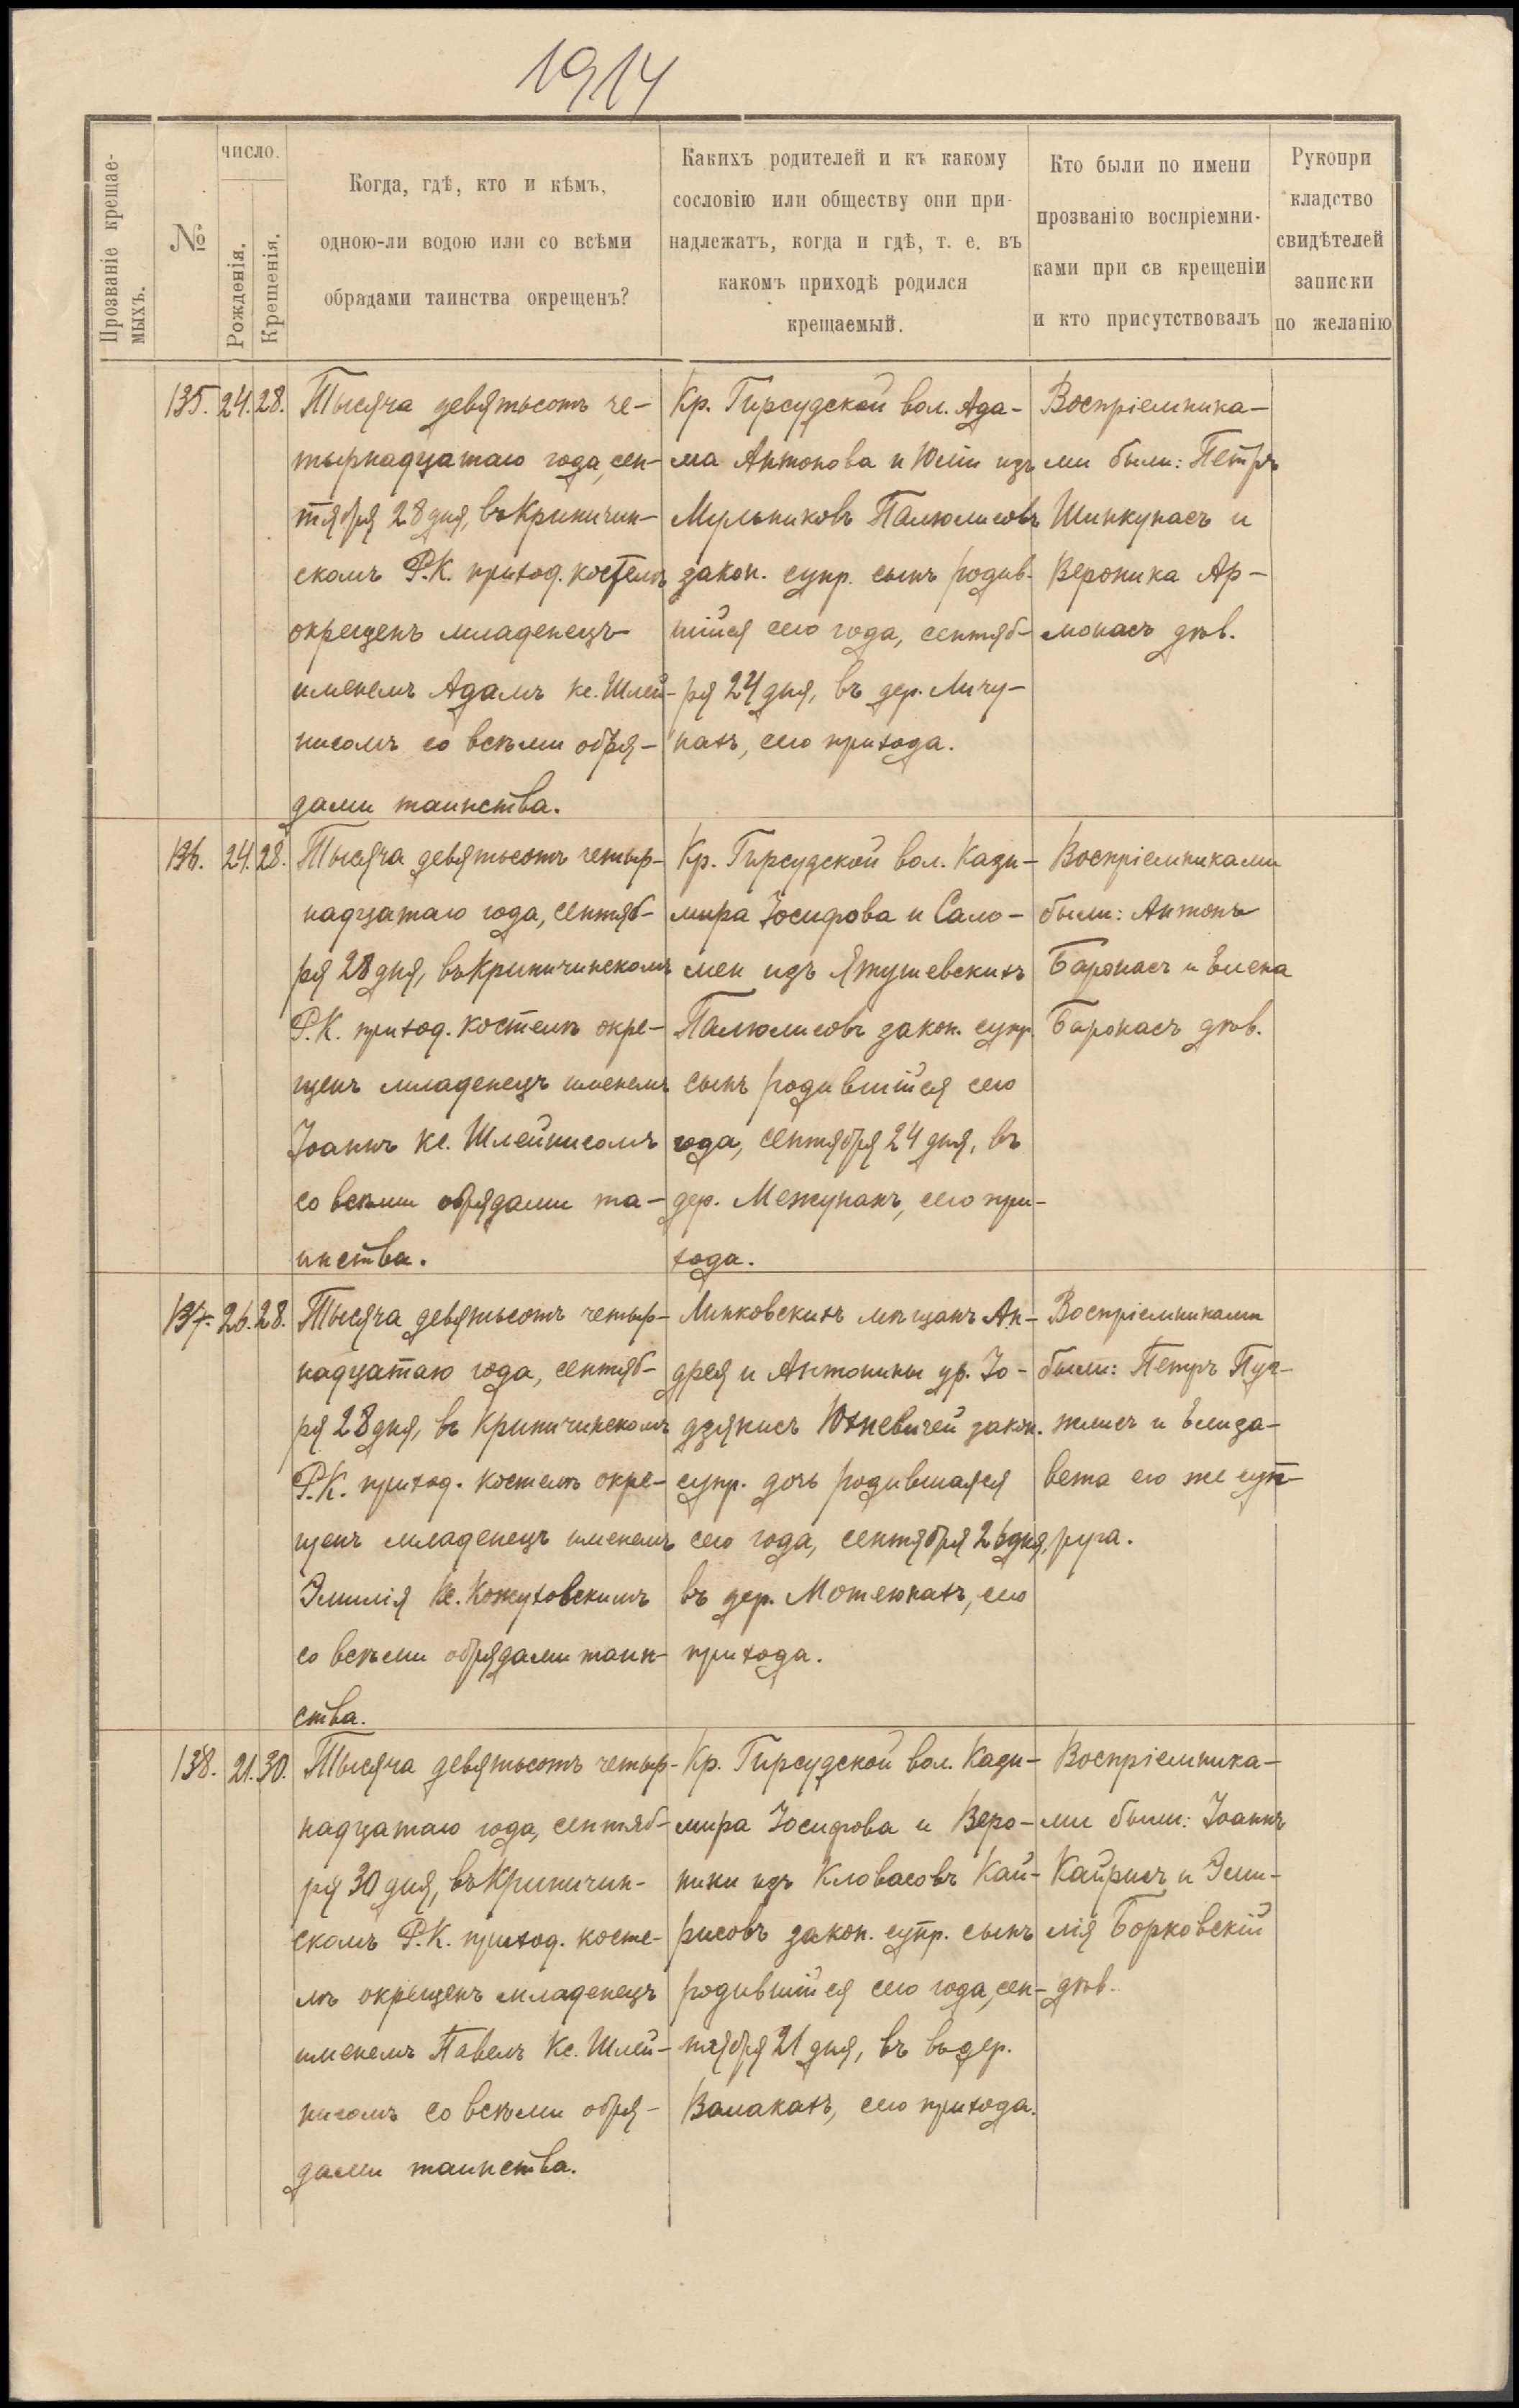 1914
Прозваніе крещае-
мыхъ.
№
число.
Рожденія.
Крещенія.
Когда, гдѣ, кто и кѣмъ,
одною-ли водою или со всѣми
обрядами таинства окрещенъ?
Какихъ родителей и къ какому
сословію или обществу они при-
надлежатъ, когда и гдѣ, т. е. въ
какомъ приходѣ родился
крещаемый.
Кто были по имени
прозванію воспріемни-
ками при св крещеніи
и кто присутствовалъ
Рукопри
кладство
свидѣтелей
записки
по желанію
135. 24. 28.
Тысяча девятьсотъ че-
тырнадцатаго года, сен-
тября 28 дня, въ Криничин-
скомъ Р.К. приход. костелѣ
окрещенъ младенецъ
именемъ Адамъ кс. Шлей-
нисомъ со всѣми обря-
дами таинства.
Кр. Гирсудской вол. Ада-
ма Антонова и Юліи изъ
Мульниковъ Палюлисовъ
закон. супр. сынъ родив-
шійся сего года, сентяб-
ря 24 дня, въ дер. Личу-
нахъ, сего прихода.
Воспріемника-
ми были: Петръ
Шинкунасъ и
Вероника Ар-
монасъ дѣв.
136. 24. 28.
Тысяча девятьсотъ четыр-
надцатаго года, сентяб-
ря 28 дня, въ Криничинскомъ
Р.К. приход. костелѣ окре-
щенъ младенецъ именемъ
Іоаннъ кс. Шлейнисомъ
со всѣми обрядами та-
инства.
Кр. Гирсудской вол. Кази-
мира Іосифова и Сало-
меи изъ Ятушевскихъ
Палюлисовъ закон. супр.
сынъ родившійся сего
года, сентября 24 дня, въ
дер. Межунахъ, сего при-
хода.
Воспріемниками
были: Антонъ
Баронасъ и Елена
Баронасъ дѣв.
137. 26. 28.
Тысяча девятьсотъ четыр-
надцатаго года, сентяб-
ря 28 дня, въ Криничинскомъ
Р.К. приход. костелѣ окре-
щенъ младенецъ именемъ
Эмилія Кс. Кожуховскимъ
со всѣми обрядами таин-
ства.
Минковскихъ мѣщанъ Ан-
дрея и Антонины ур. Іо-
дзянисъ Юхневичей закон.
супр. дочь родившаяся
сего года, сентября 26 дня,
въ дер. Мотеюнахъ, сего
прихода.
Воспріемниками
были: Петръ Пуг-
жлисъ и Елиза-
вета его же суп-
руга.
138. 21. 30.
Тысяча девятьсотъ четыр-
надцатаго года, сентяб-
ря 30 дня, въ Криничин-
скомъ Р.К. приход. косте-
лѣ окрещенъ младенецъ
именемъ Павелъ Кс. Шлей-
нисомъ со всѣми обря-
дами таинства.
Кр. Гирсудской вол. Кази-
мира Іосифова и Веро-
ники изъ Кловасовъ Кай-
рисовъ закон. супр. сынъ
родившійся сего года, сен-
тября 21 дня, въ въ дер.
Валакахъ, сего прихода.
Воспріемника-
ми были: Іоаннъ
Кайрисъ и Эми-
лія Борковскій
дѣв.